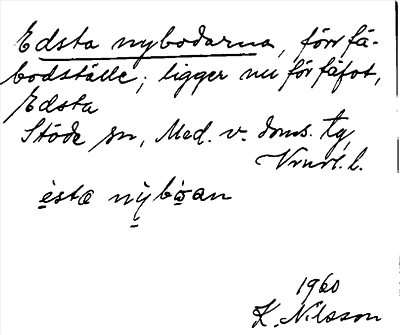 Edsta nybodarna, förr fä-
bodställe; ligger nu för fäfot,
Edsta
Stöde sn, Med. v. doms. tg,
l.
èsta nỳbo̱an
1960
K. Nilsson